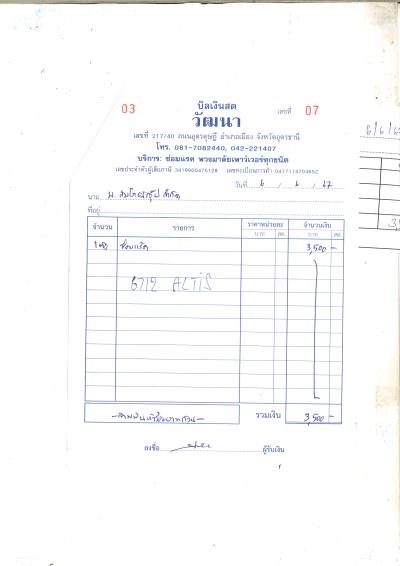 03
บิลเงินสด
เลขที่ 07
วัฒนา
เลขที่ 217/40 ถนนอุดรดุษฎี อำเภอเมือง จังหวัดอุดรธานี
โทร. 081-7082440, 042-221407
บริการ: ซ่อมแรค พวงมาลัยเพาว์เวอร์ทุกชนิด
เลขประจำตัวผู้เสียภาษี 3419900475128 เลขทะเบียนการค้า 0417114704852
วันที่ 6 / 6 / 67
นาม
ที่อยู่
จำนวน รายการ ราคาหน่วยละ จำนวนเงิน
บาท สต. บาท สต.
ซ่อมแร็ค 3,500 -
6712 ALTIS
-สามพันห้าร้อยบาทถ้วน- รวมเงิน 3,500 -
ลงชื่อ ผู้รับเงิน
6/6/6